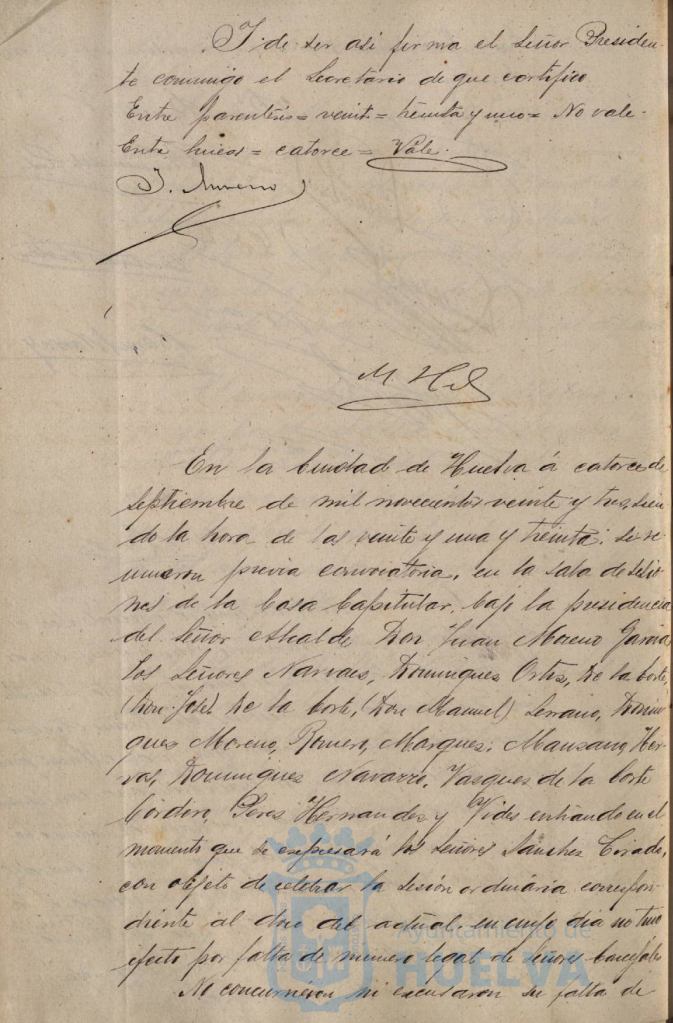 Y de ser asi firma el Señor Presiden-
te conmigo el Secretario de que certifico
Entre parentesis = veint = treinta y uno = No vale.
Entre lineas = catorce = Vale.
J. Moreno
M. H
En la Ciudad de Huelva á catorce de
Septiembre de mil novecientos veinte y tres, sien
do la hora de las veinte y una y treinta; se re
unieron previa convocatoria, en la sala de sesio
nes de la Casa Capitular, bajo la presidencia
del Señor Alcalde Don Juan Moreno Garcia
los Señores Narvaes, Dominguez Ortiz, De la Corte,
(Don José) De la Corte, (Don Manuel) Serrano, Domin
gues Moreno, Romero, Marques, Manzano, Her
vas, Dominguez Navarro, Vasques de la Corte
Cordero, Peres Hernandez y Vides entrando en el
momento que se expresará los Señores Sánchez Tirado,
con objeto de celebrar la sesión ordinária correspon
diente al doce del actual, en cuyo dia no tuvo
efecto por falta de número legal de Señores Concejales
No concurrieron ni excusaron su falta de
Ayuntamiento de
HUELVA